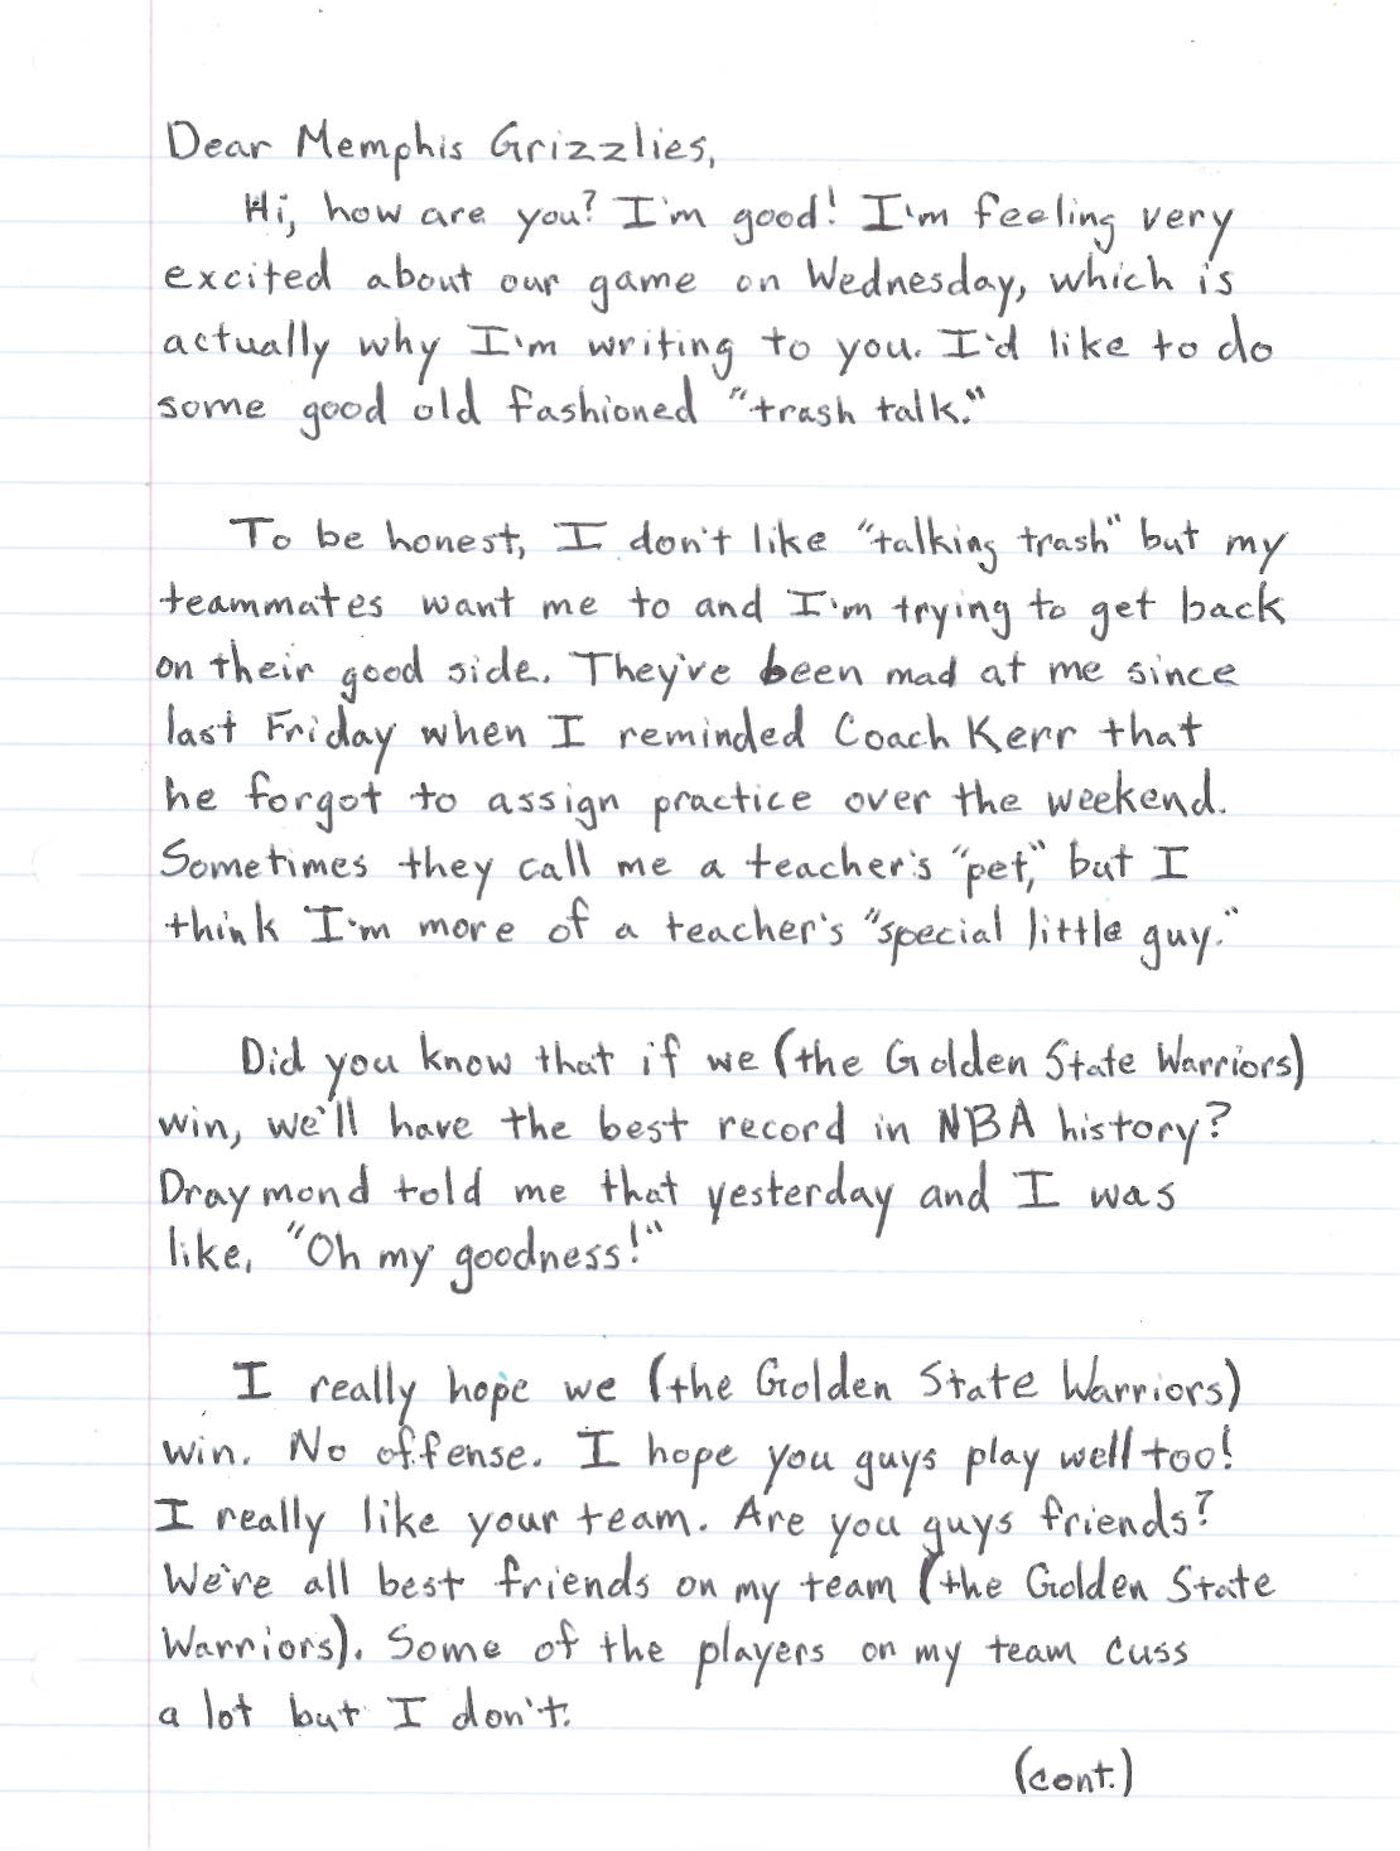 Dear Memphis Grizzlies,
Hi, how are you? I'm good! I'm feeling very
excited about our game on Wednesday, which is
actually why I'm writing to you. I'd like to do
some good old fashioned "trash talk."
To be honest, I don't like "talking trash" but my
teammates want me to and I'm trying to get back
on their good side. They've been mad at me since
last Friday when I reminded Coach Kerr that
he forgot to assign practice over the weekend.
Sometimes they call me a teacher's "pet," but I
think I'm more of a teacher's "special little guy."
Did you know that if we (the Golden State Warriors)
win, we'll have the best record in NBA history?
Draymond told me that yesterday and I was
like, "Oh my goodness!"
I really hope we (the Golden State Warriors)
win. No offense. I hope you guys play well too!
I really like your team. Are you guys friends?
We're all best friends on my team (the Golden State
Warriors). Some of the players on my team cuss
a lot but I don't.
(cont.)